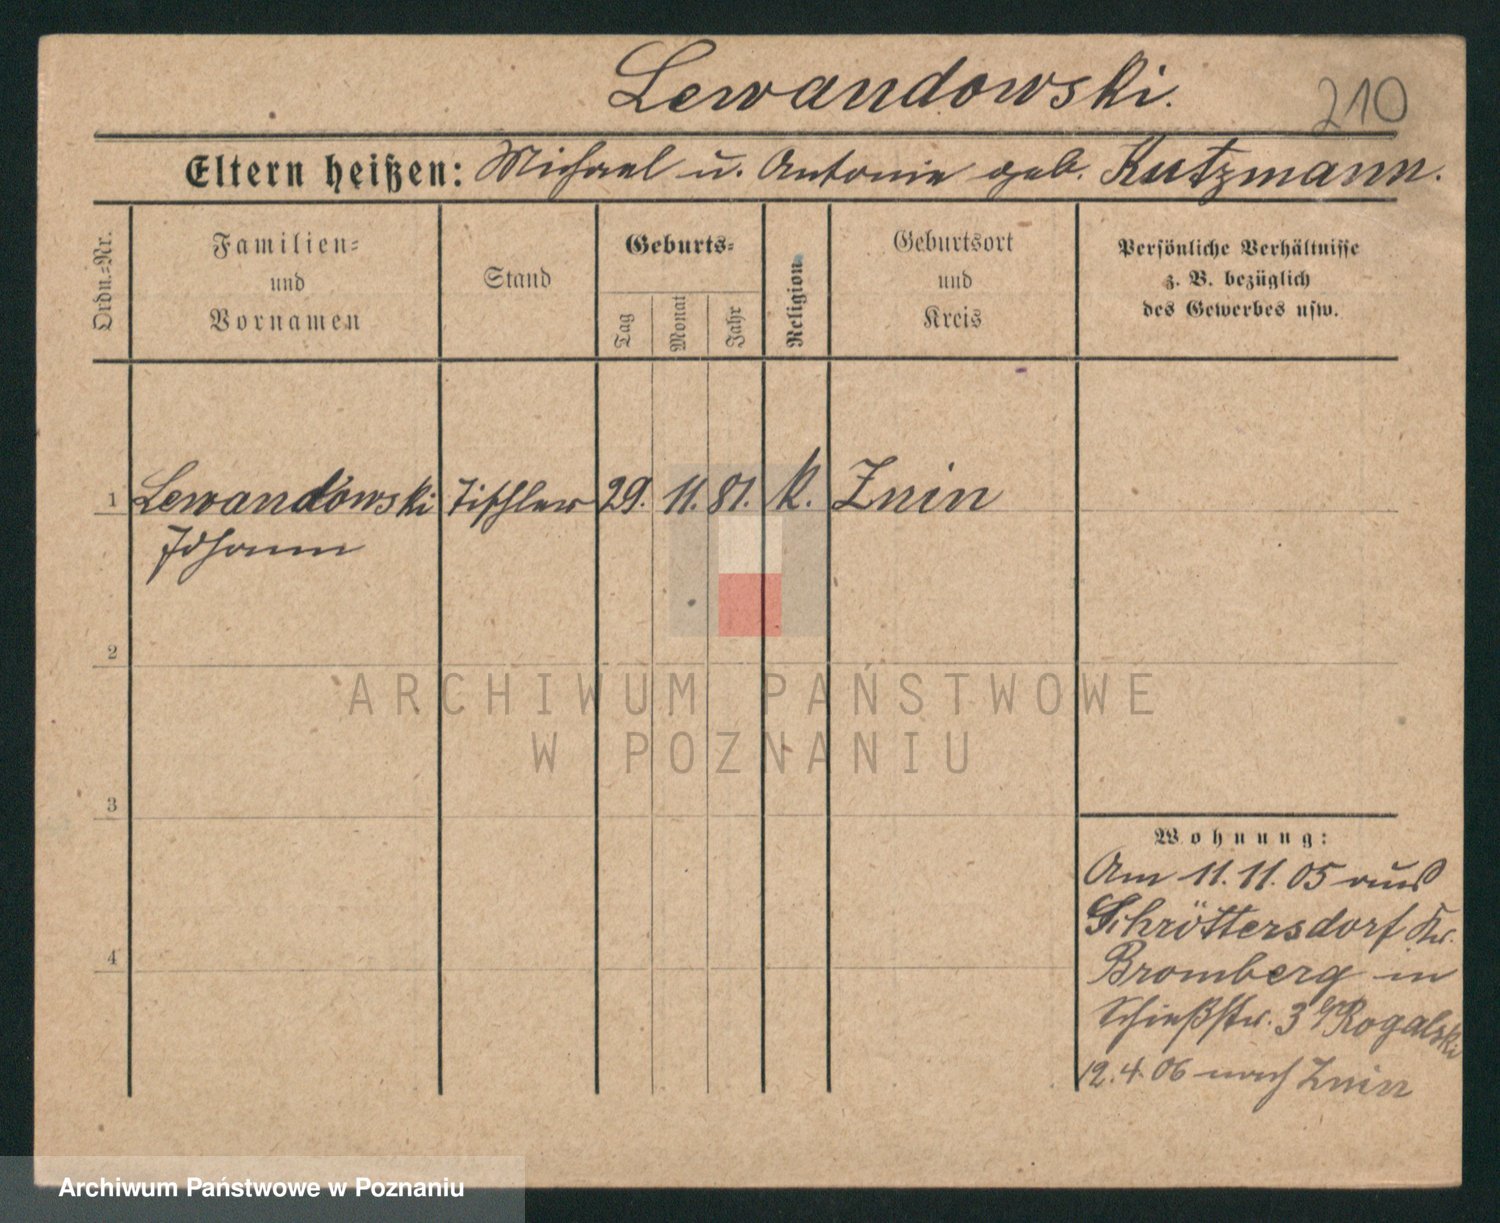 Lewandowski.
210
Eltern heißen: Michael u. Antonie geb. Kutzmann.
Ordn.=Nr.
Familien=
und
Vornamen
Stand
Geburts=
Tag
Monat
Jahr
Religion
Geburtsort
und
Kreis
Persönliche Verhältnisse
z. B. bezüglich
des Gewerbes usw.
1 Lewandowski Tischler 29. 11. 81. k. Znin
Johann
2
3
4
Wohnung:
Am 11.11.05 aus
Schröttersdorf Kr.
Bromberg in
Schießstr. 3 Rogalski
12.4.06 nach Znin
ARCHIWUM PAŃSTWOWE
W POZNANIU
Archiwum Państwowe w Poznaniu